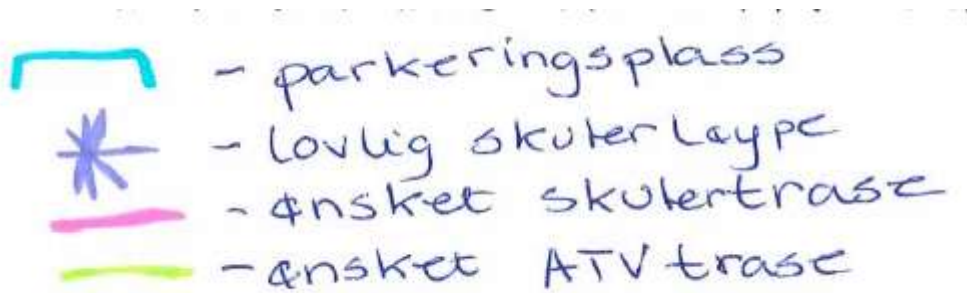 - parkeringsplass
- lovlig skuterløype
- ønsket skutertrase
- ønsket ATV trase